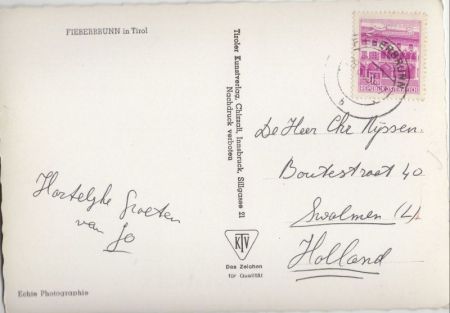 FIEBERBRUNN in Tirol
Tiroler Kunstverlag, Chizzali, Innsbruck, Sillgasse 21
Nachdruck verboten
De Heer Chr Nyssen.
Boutestraat 40
Swalmen (L).
Holland
Hartelyke Groeten
van Jo
KTV
Das Zeichen
für Qualität
Echte Photographie